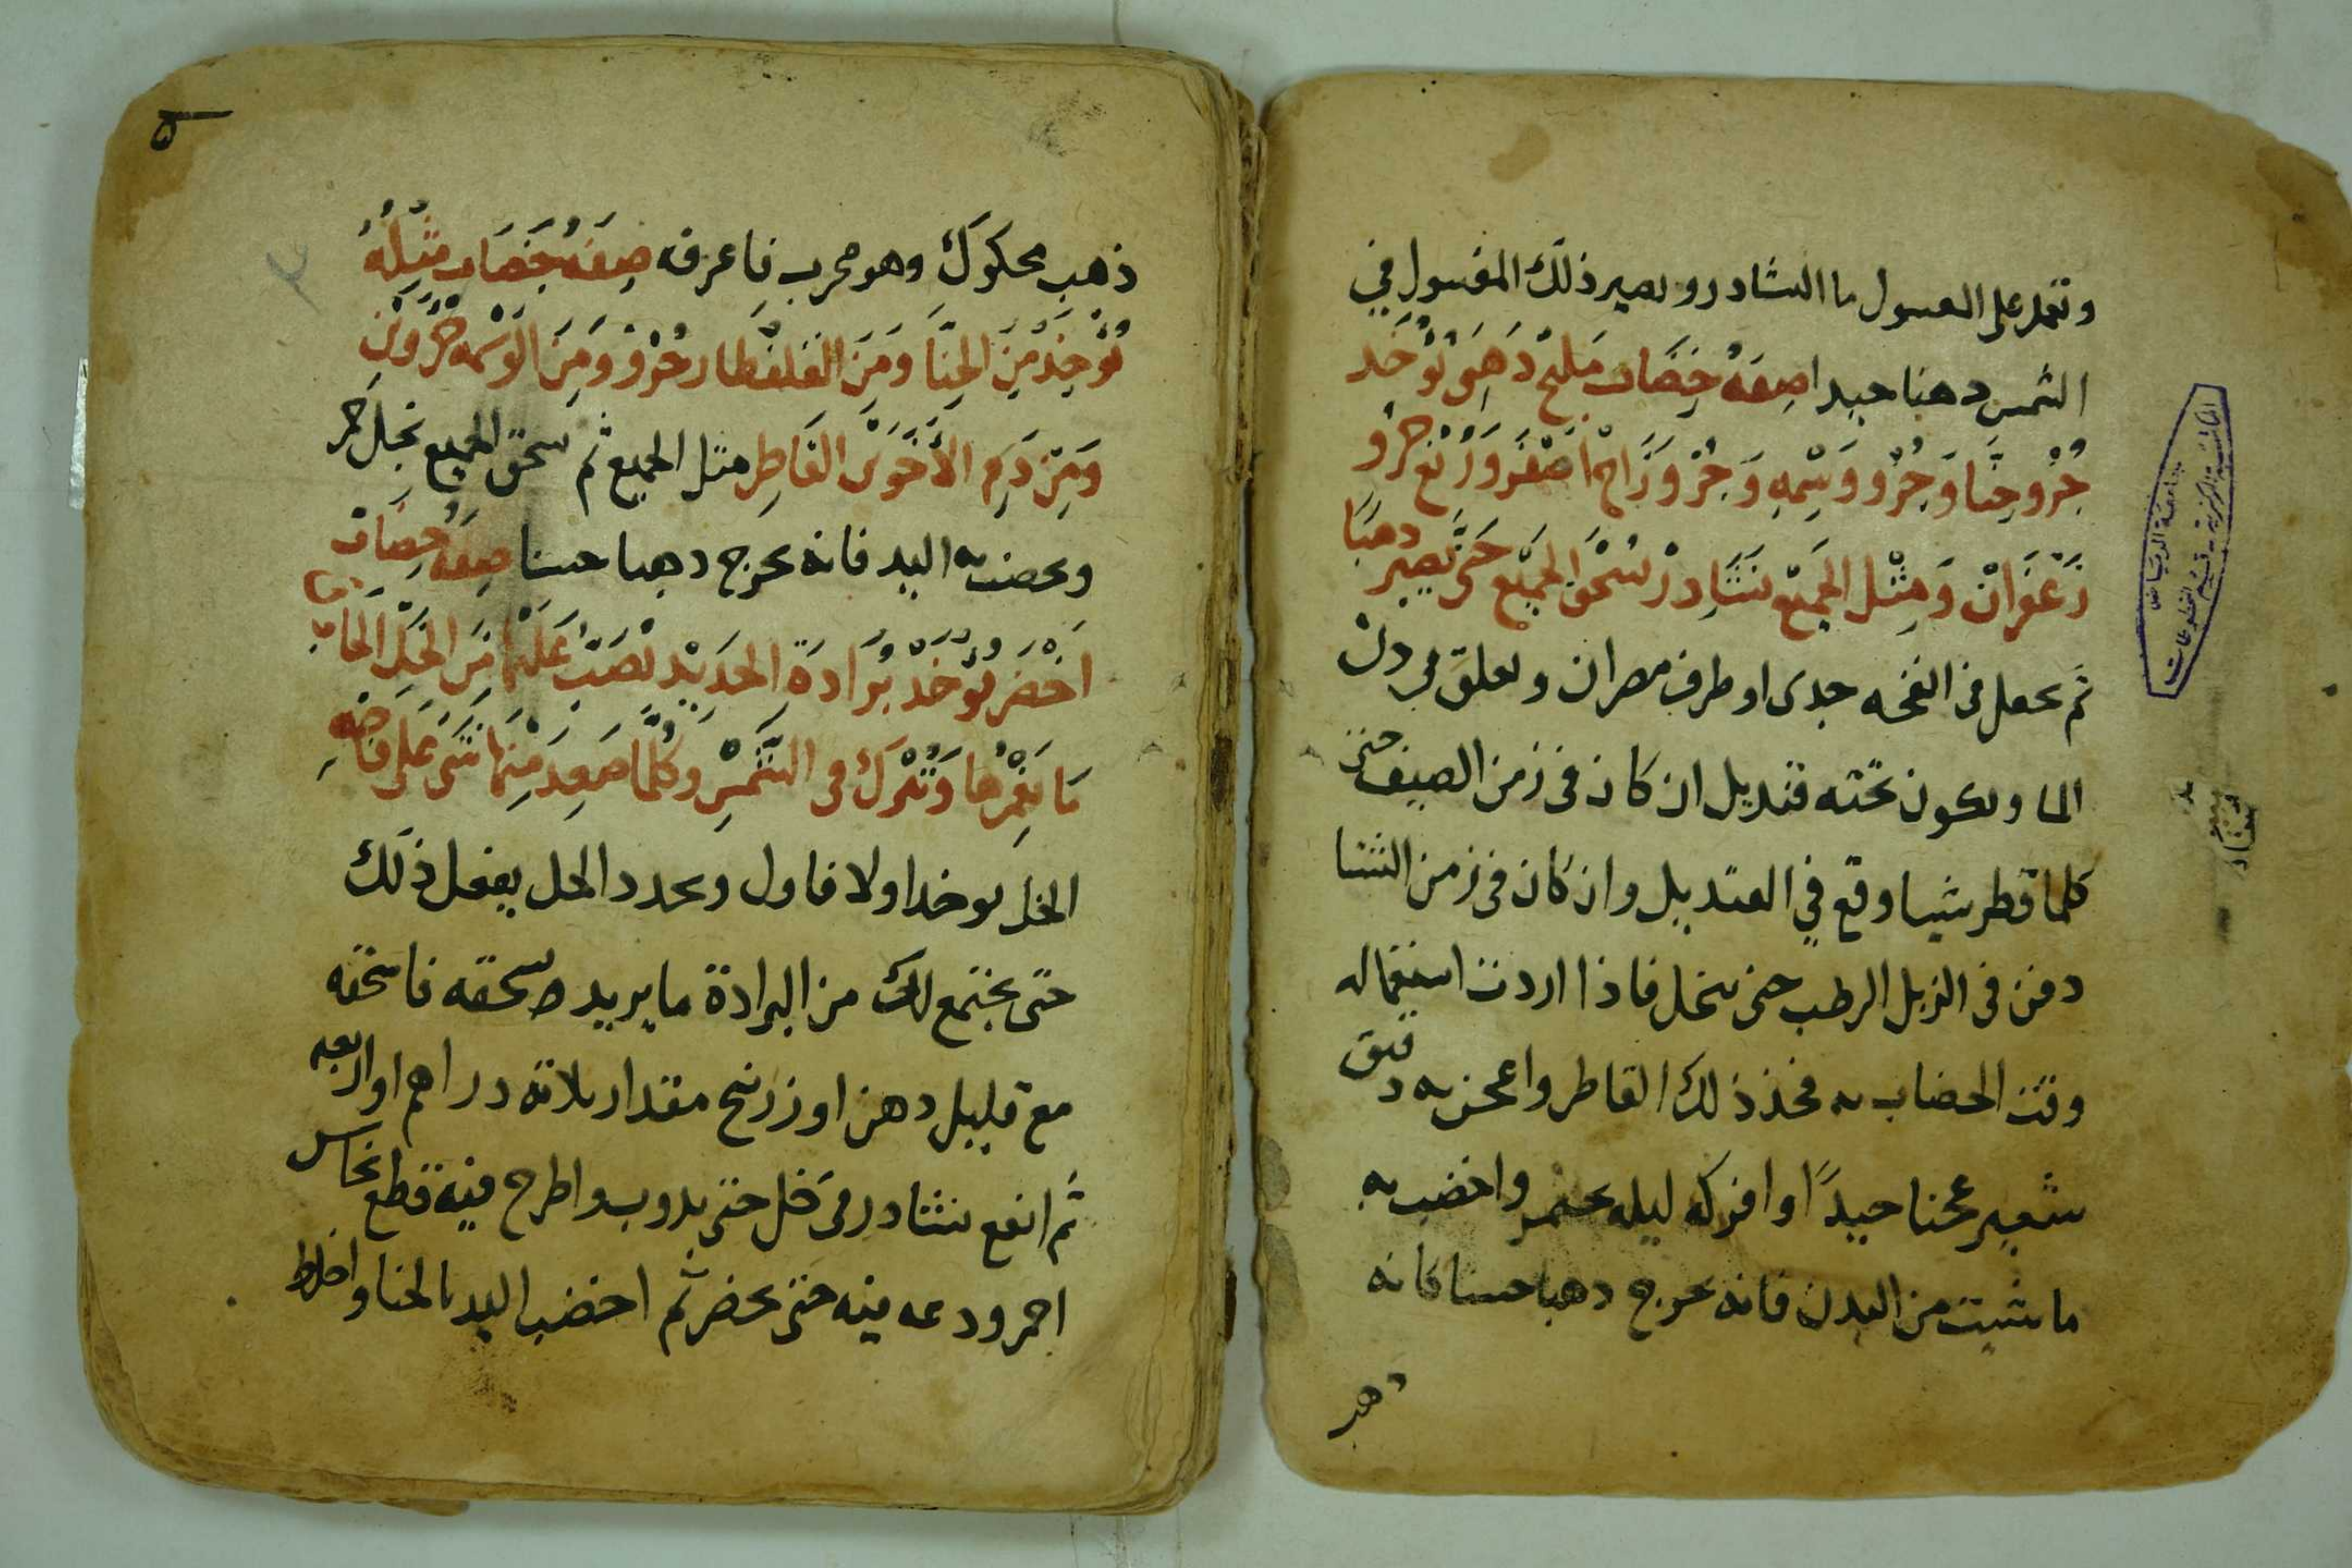 وتعمد على المغسول ما النشادر ويصير ذلك المغسول في
الشمس دهنا جيدا صِفَةُ خِضَاب مَليح دَهَبى تُوْخَد
جُزْو حِنَّا وَجُزْو وَسْمِه وَجُزْو زَاجْ اصْفَر وَرُبْع جُزْو
زَعْفَرَانْ وَمِثْل الجَميْع نشَادِرْ تسْحَق الجَميْع حَتَّى تَصِيْر دهنًا
ثم يجعل في انفحه جدى او طرف مصران ويعلق في دن
الما ويكون تحته قنديل ان كان في زمن الصيف حتى
كلما قطر شيا وقع في القنديل وان كان في زمن الشتا
دفن في الزبل الرطب حتى ينحل فاذا اردت استعماله
وقت الخضاب به فخذ ذلك القاطر واعجن به دقيق
شعير عجنا جيدًا او اتركه ليله يختمر واخضب به
ما شيت من البدن فانه يخرج دهبا حسنا كانه
دهب
ذهب محكوك وهو مجرب فاعرفه صِفَةُ خِضَاب مِثلِهُ
تُوْخَذ مِنَ الحِنَّا وَمِنَ القلفطار جُزْو وَمِنَ الوَسْمه جُزْوَيْن
وَمِنْ دَمِ الأَخَوَيْن القَاطِر مثل الجميع ثم يسحق الجميع بخل خمر
ويخضب به اليد فانه يخرج دهبا حسنا صِفَة خِضَاب
اخْضَر يُوْخَذْ بُرَادَةِ الحَديْد تصَبّ عَليْهَا مِنَ الخَلّ الحَاذق
مَا يَغْمرُهَا وَتُتْركْ في الشَّمْسِ وكُلّمَا صَعِدَ مِنْهَا شَى عَلى
الخل يوخذ اولا فاول ويجدد الخل يفعل ذلك
حتى يجتمع لك من البرادة ما يريد سحقه فاسحقه
مع قليل دهن او زرنيخ مقدار ثلاثه دراهم او اربعه
ثم انقع نشادر في خل حتى يدوب واطرح فيه قطع نحاس
احمر ودعه فيه حتى يخضر ثم اخضب اليد بالحنا واخلط